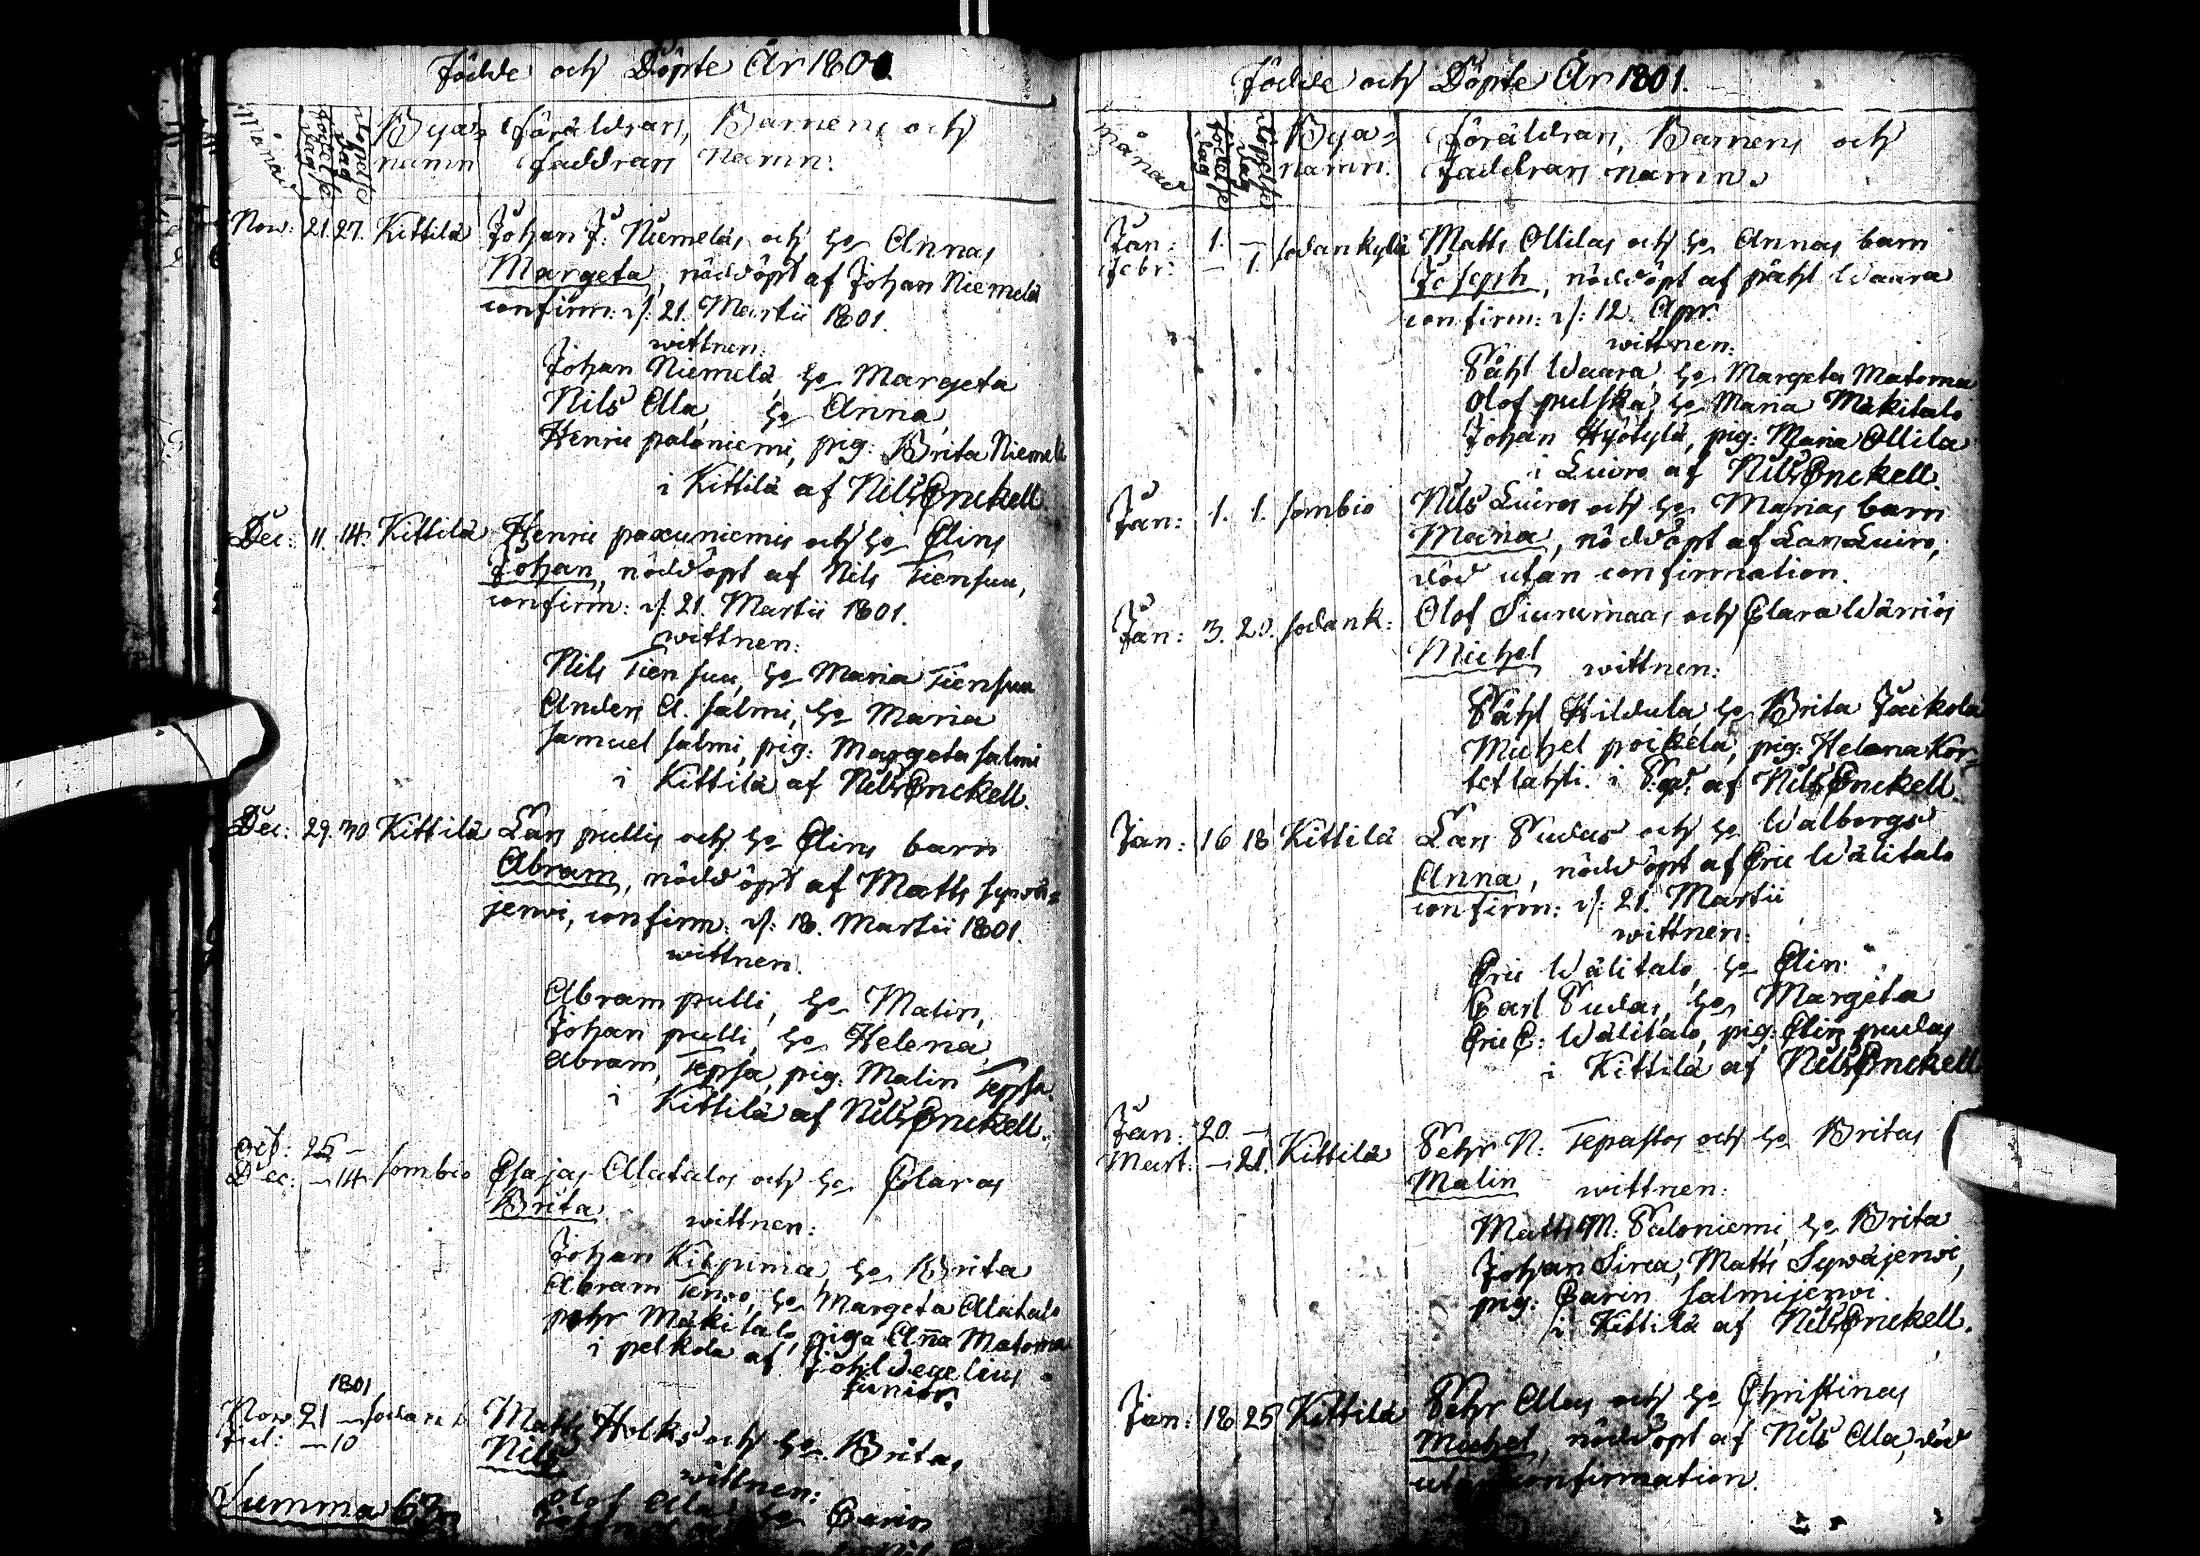 Födde och Döpte År 1800.
Månad
Födelse dag
Döpelse dag
Bya= namn
Föräldrars, Barnens och
Faddrars Namn.
Nov: 21. 27. Kittilä Johan J: Niemeläs och ho Annas
Margeta, nöddöpt af Johan Niemelä
confirm: d: 21. Martii 1801.
wittnen:
Johan Niemelä, ho Margeta
Nils Alla, ho Anna,
Henric paloniemi, pig: Brita Niemelä
i Kittilä af Nils Enckell.
Dec: 11. 14. Kittilä Henric paxuniemis och ho Elins
Johan, nöddöpt af Nils Tiensuu,
confirm: d: 21. Martii 1801.
wittnen:
Nils Tiensuu, ho Maria Tiensuu
Anders A. Salmi, ho Maria
Samuel Salmi, pig: Margeta Salmi
i Kittilä af Nils Enckell.
Dec: 29. 30. Kittilä Lars pullis och ho Elins barn
Abram, nöddöpt af Matts Sywä=
jerwi, confirm: d: 18. Martii 1801.
wittnen.
Abram pulli, ho Malin,
Johan pulli, ho Helena,
Abram, Tepsa, pig: Malin Tepsa.
i Kittilä af Nils Enckell.
Oct: 25 —
Dec: — 14. Sombio Esajas Alatalos och ho Claras
Brita. wittnen:
Johan Kilpima, ho Brita
Abram Terwo, ho Margeta Alatalo
pehr Mäkitalo, piga Anna Matoma
i pelkola af Joh. Wegelius
junior.
1801
Nov. 21 — Sodank Matts Holks och ho Britas
Jul: — 10 Nils
wittnen:
Olof Alla ho Carin
Summa 63
Födde och Döpte År 1801.
Månad
Födelse dag
Döpelse dag
Bya= namn.
Föräldrars, Barnens och
Faddrars namn.
Jan: 1. — Sodankylä Matts Ollilas och ho Annas barn
Febr: — 1. Joseph, nöddöpt af påhl Waara
confirm: d: 12. Apr.
wittnen:
Påhl Waara, ho Margeta Matoma
Olof pulska, ho Maria Mäkitalo
Johan Hyötylä, pig: Maria Ollila
i Luiro af Nils Enckell.
Jan: 1. 1. Sombio Nils Luiros och ho Marias barn
Maria, nöddöpt af Lars Luiro,
död utan confirmation.
Jan: 3. 20. Sodank: Olof Siurumaas och Clara Wärriös
Michel wittnen:
Påhl Hildula, ho Brita Jäikola
Michel poikela, pig: Helena Kor=
telahti. i P:gd. af Nils Enckell.
Jan: 16 18 Kittilä Lars Pudas och ho Walborgs
Anna, nöddöpt af Eric Wälitalo
confirm: d: 21. Martii
wittnen:
Eric Wälitalo, ho Elin.
Carl Pudas, ho Margeta
Eric E: Wälitalo, pig: Elin pudas
i Kittilä af Nils Enckell
Jan: 20. —
Mart. — 21. Kittilä Pehr N: Tepastos och ho Britas
Malin wittnen:
Matts M: Paloniemi, ho Brita
Johan Sirca, Matts Sywäjerwi,
pig: Carin Salmijerwi.
i Kittilä af Nils Enckell.
Jan: 18 25 Kittilä Pehr Allas och ho Christinas
Michel, nöddöpt af Nils Alla, död
utan confirmation.